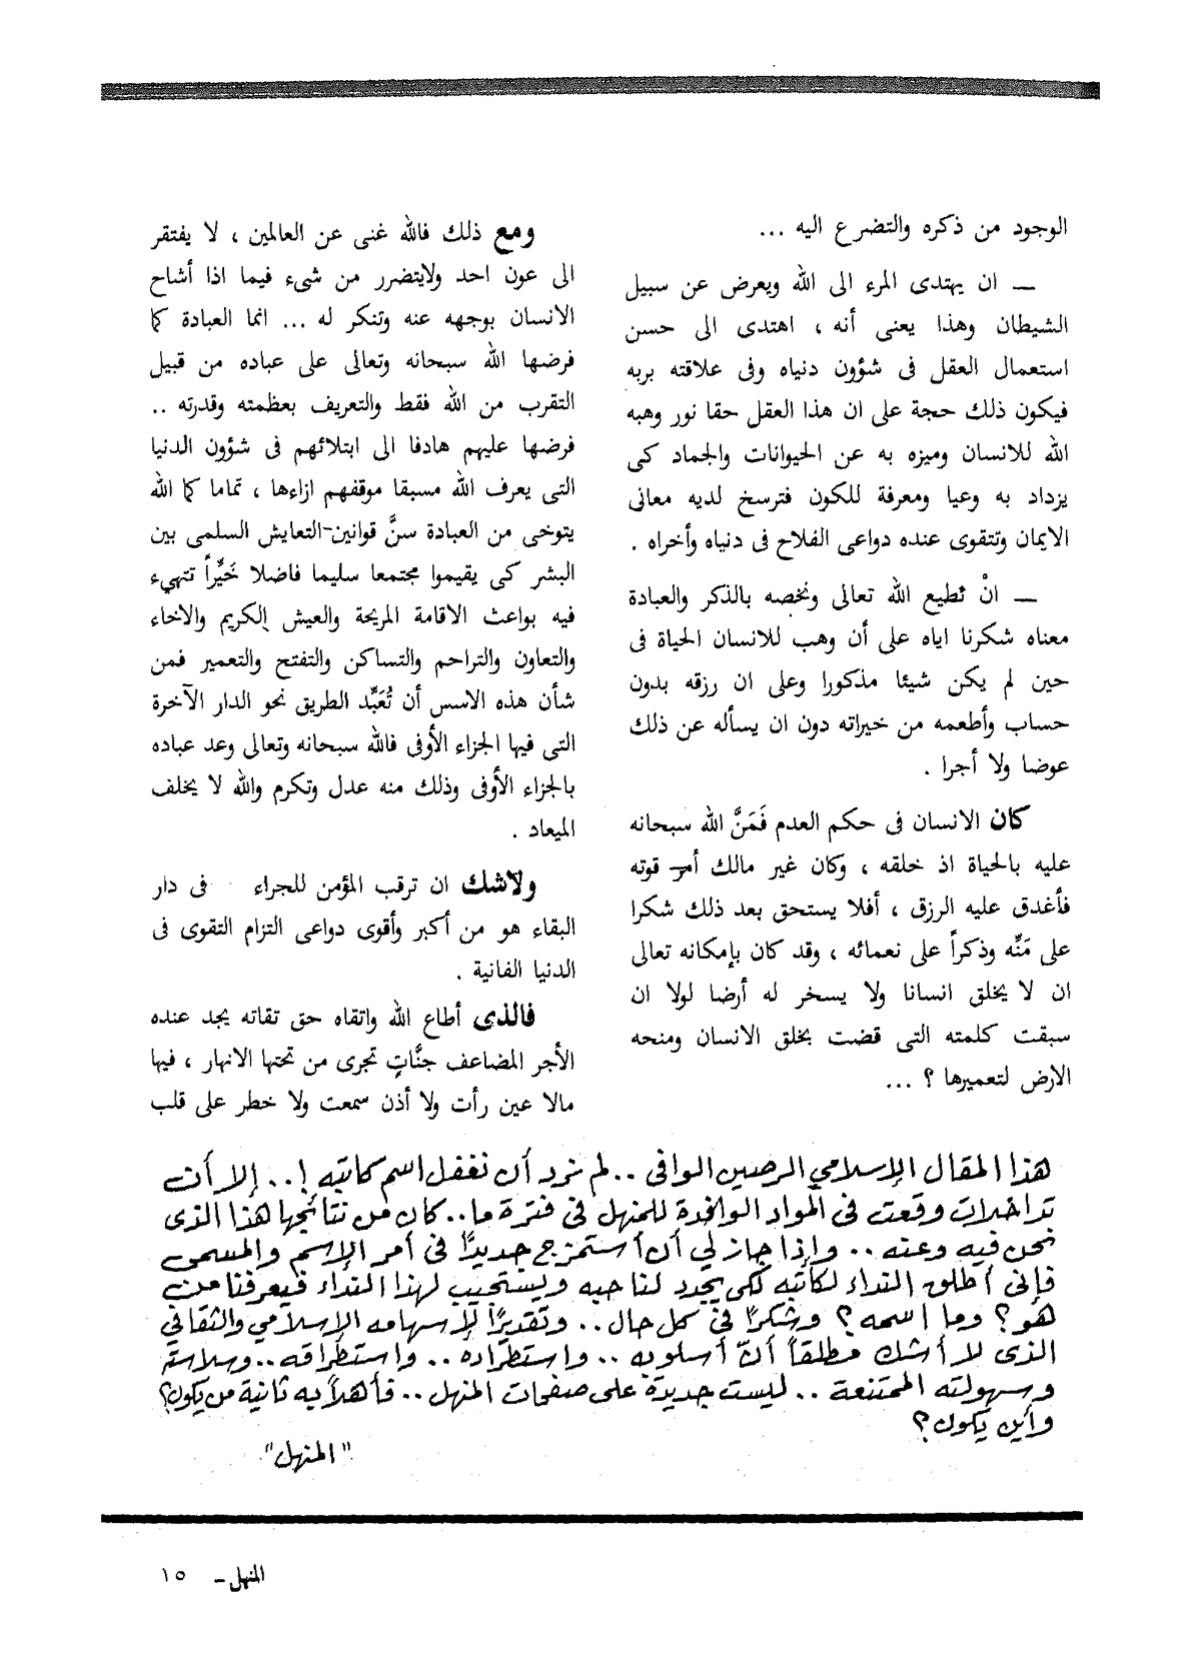 الوجود من ذكره والتضرع اليه ...
— ان يهتدى المرء الى الله ويعرض عن سبيل
الشيطان وهذا يعنى أنه ، اهتدى الى حسن
استعمال العقل فى شؤون دنياه وفى علاقته بربه
فيكون ذلك حجة على ان هذا العقل حقا نور وهبه
الله للانسان وميزه به عن الحيوانات والجماد كى
يزداد به وعيا ومعرفة للكون فترسخ لديه معانى
الايمان وتتقوى عنده دواعى الفلاح فى دنياه وأخراه .
— انْ نطيع الله تعالى ونخصه بالذكر والعبادة
معناه شكرنا اياه على أن وهب للانسان الحياة فى
حين لم يكن شيئا مذكورا وعلى ان رزقه بدون
حساب وأطعمه من خيراته دون ان يسأله عن ذلك
عوضا ولا أجرا .
كان الانسان فى حكم العدم فَمَنَّ الله سبحانه
عليه بالحياة اذ خلقه ، وكان غير مالك أمر قوته
فأغدق عليه الرزق ، أفلا يستحق بعد ذلك شكرا
على مَنِّه وذكراً على نعمائه ، وقد كان بإمكانه تعالى
ان لا يخلق انسانا ولا يسخر له أرضا لولا ان
سبقت كلمته التى قضت بخلق الانسان ومنحه
الارض لتعميرها ؟ ...
ومع ذلك فالله غنى عن العالمين ، لا يفتقر
الى عون احد ولايتضرر من شىء فيما اذا أشاح
الانسان بوجهه عنه وتنكر له ... انما العبادة كما
فرضها الله سبحانه وتعالى على عباده من قبيل
التقرب من الله فقط والتعريف بعظمته وقدرته ..
فرضها عليهم هادفا الى ابتلائهم فى شؤون الدنيا
التى يعرف الله مسبقا موقفهم ازاءها ، تماما كما الله
يتوخى من العبادة سنَّ قوانين-التعايش السلمى بين
البشر كى يقيموا مجتمعا سليما فاضلا خَيِّراً تتهيء
فيه بواعث الاقامة المريحة والعيش الكريم والاخاء
والتعاون والتراحم والتساكن والتفتح والتعمير فمن
شأن هذه الاسس أن تُعَبِّد الطريق نحو الدار الآخرة
التى فيها الجزاء الأوفى فالله سبحانه وتعالى وعد عباده
بالجزاء الأوفى وذلك منه عدل وتكرم والله لا يخلف
الميعاد .
ولاشك ان ترقب المؤمن للجراء فى دار
البقاء هو من أكبر وأقوى دواعى التزام التقوى فى
الدنيا الفانية .
فالذى أطاع الله واتقاه حق تقاته يجد عنده
الأجر المضاعف جنَّاتٍ تجرى من تحتها الانهار ، فيها
مالا عين رأت ولا أذن سمعت ولا خطر على قلب
هذا المقال الإسلامي الرصين الوافى .. لم نرد أن نغفل اسم كاتبه !.. إلا أن
تداخلات وقعت فى المواد الوافدة للمنهل فى فترة ما.. كان من نتائجها هذا الذى
نحن فيه وعنه .. وإذا جاز لي أن أستمزج جديدًا فى أمر الإسم والمسمى
فإنى أطلق النداء لكاتبه لكى يجدد لنا حبه ويستجيب لهذا النداء فيعرفنا من
هو ؟ وما اسمه ؟ وشكرًا فى كل حال .. وتقديرًا لإسهامه الإسلامي والثقافي
الذى لا أشك مطلقاً أنّ أسلوبه .. واستطراده .. واستطراقه .. وسلاسته
وسهولته الممتنعة .. ليست جديدة على صفحات المنهل .. فأهلاً به ثانية من يكون؟
وأين يكون ؟
"المنهل"
المنهل - ١٥